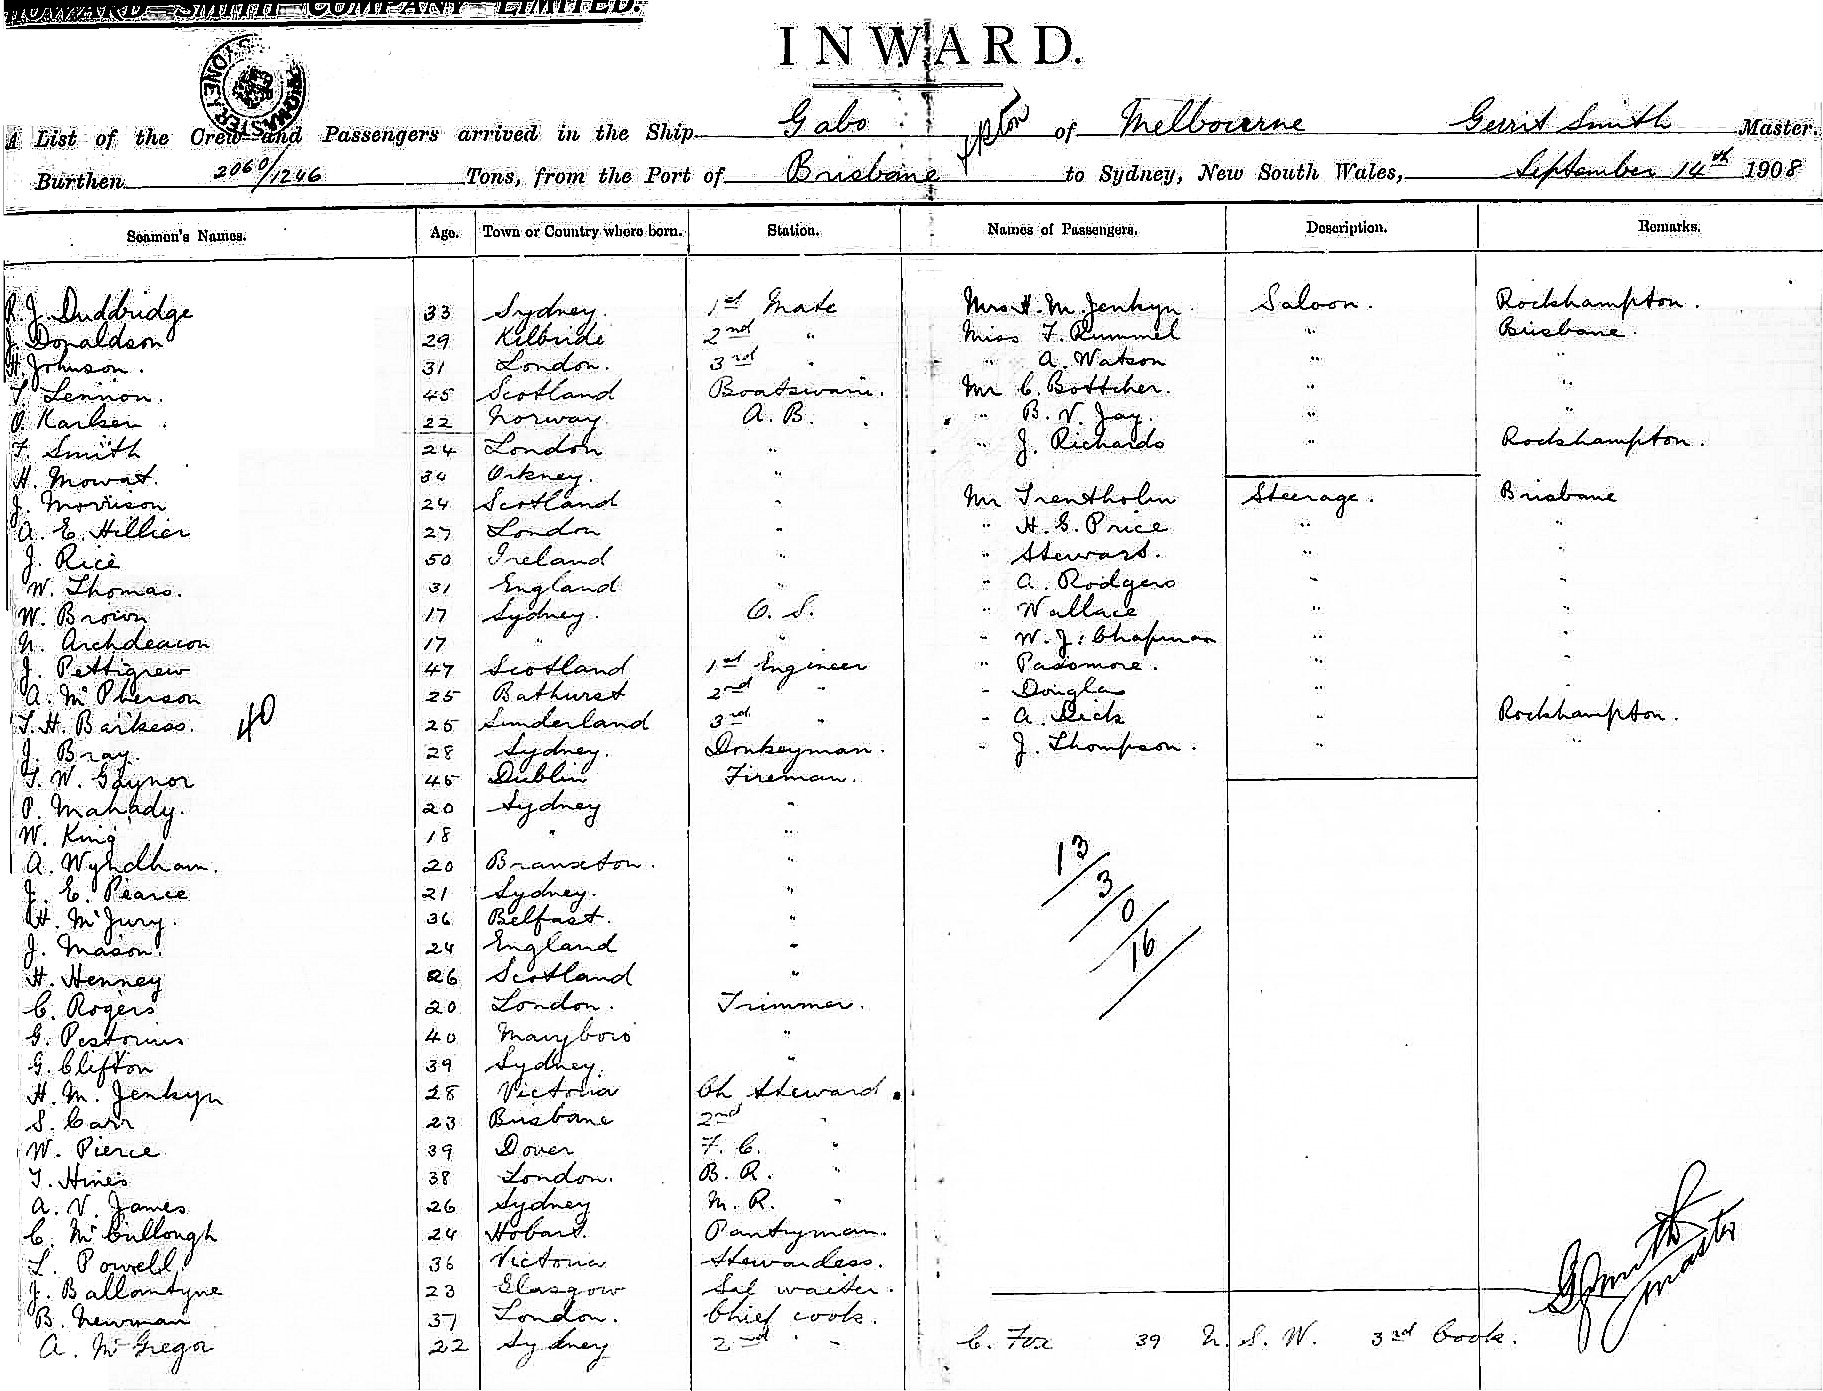 HOWARD SMITH COMPANY LIMITED.
INWARD.
A List of the Crew and Passengers arrived in the Ship Gabo of Melbourne Gerrit Smith Master.
Burthen 2060/1246 Tons, from the Port of Brisbane to Sydney, New South Wales, September 14th 1908
Seamen's Names. Age. Town or Country where born. Station. Names of Passengers. Description. Remarks.
R. J. Duddbridge 33 Sydney. 1st Mate Mrs H. M. Jenkyn. Saloon. Rockhampton.
J. Donaldson 29 Kilbride 2nd " Miss F. Rummel " Brisbane.
H. Johnson. 31 London. 3rd " " A. Watson " "
T. Lennon. 45 Scotland Boatswain. Mr C. Bottcher. " "
O. Karlsen. 22 Norway A. B. " B. V. Jay. " "
F. Smith 24 London " " J. Richards " Rockhampton.
H. Mowat. 34 Orkney. "
J. Morrison 24 Scotland " Mr Trentholm Steerage. Brisbane
A. E. Hillier 27 London " " H. G. Price " "
J. Rice 50 Ireland " " Stewart. " "
W. Thomas. 31 England " " A. Rodgers " "
W. Brown 17 Sydney. O. S. " Wallace " "
N. Archdeacon 17 " " " W. J. Chapman " "
J. Pettigrew 47 Scotland 1st Engineer " Passmore. " "
A. McPherson 25 Bathurst 2nd " " Douglas " "
T. H. Barkess. 40 25 Sunderland 3rd " " A. Dick " Rockhampton.
J. Bray. 28 Sydney. Donkeyman. " J. Thompson. " "
T. W. Gaynor 45 Dublin Fireman.
P. Mahady. 20 Sydney "
W. King 18 " "
A. Wyndham. 20 Branxton. " 13
J. E. Pearce 21 Sydney. " 3
H. McJury. 36 Belfast. " 0
J. Mason. 24 England " 16
H. Henney 26 Scotland "
C. Rogers 20 London. Trimmer.
G. Pestorius 40 Maryboro "
G. Clifton 39 Sydney. "
H. M. Jenkyn 28 Victoria Ch Steward.
S. Carr 23 Brisbane 2nd "
W. Pierce 39 Dover F. C. "
T. Hines 38 London. B. R. "
A. V. James 26 Sydney M. R. "
C. McCullough 24 Hobart. Pantryman.
L. Powell 36 Victoria Stewardess.
J. Ballantyne 23 Glasgow Sal waiter.
B. Newman 37 London. Chief cook. G Smith Master
A. McGregor 22 Sydney 2nd " C. Fox 39 N. S. W. 3rd Cook.